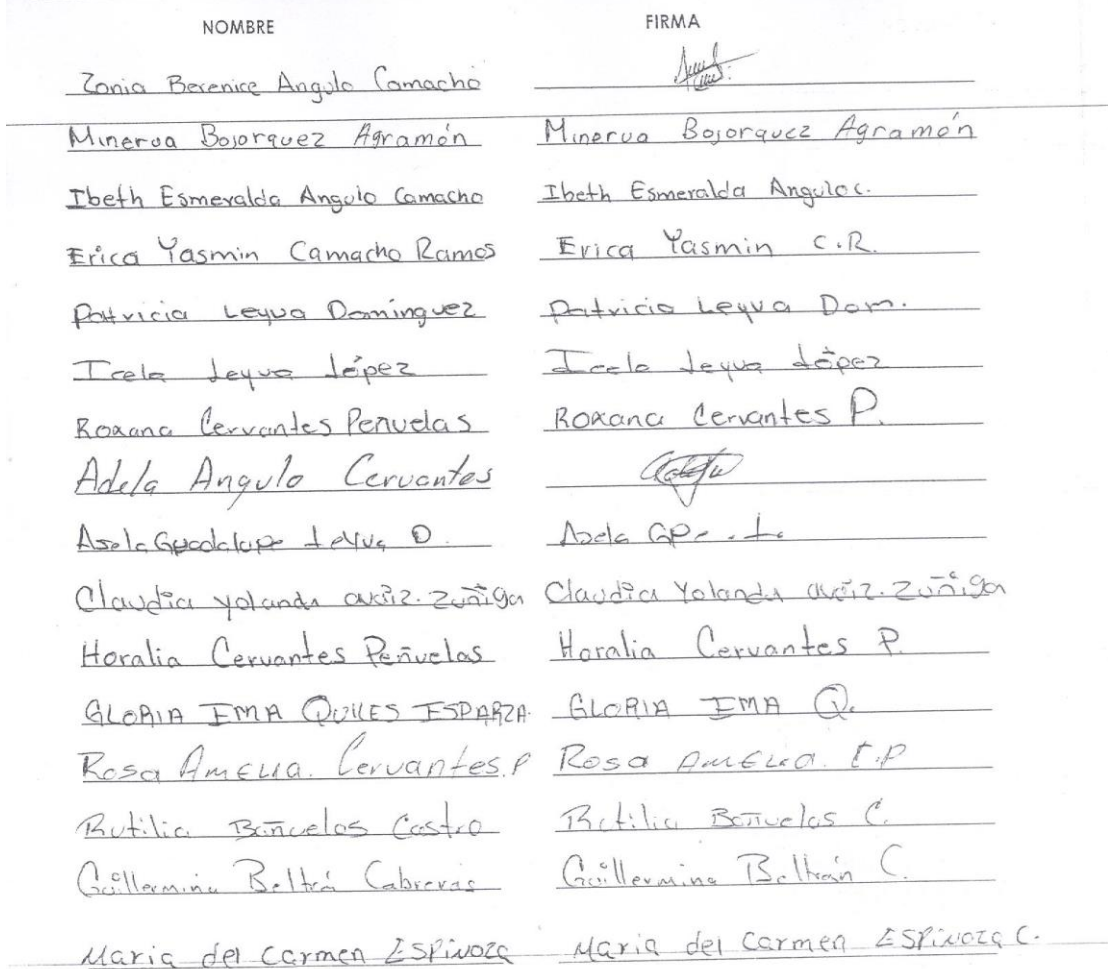 NOMBRE FIRMA
Zonia Berenice Angulo Camacho
Minerva Bojorquez Agramón Minerva Bojorquez Agramón
Ibeth Esmeralda Angulo Camacho Ibeth Esmeralda Angulo C.
Erica Yasmin Camacho Ramos Erica Yasmin C.R.
Patricia Leyva Domínguez Patricia Leyva Dom.
Icela Leyva López Icela Leyva López
Roxana Cervantes Peñuelas Roxana Cervantes P.
Adela Angulo Cervantes
Asela Guadalupe Leyva D. Asela GPe. L.
Claudia yolanda Zuñiga Claudia Yolanda Zuñiga
Horalia Cervantes Peñuelas Horalia Cervantes P.
GLORIA EMA QUILES ESPARZA GLORIA EMA Q.
Rosa AmELIA. Cervantes P Rosa AmELIA. C.P
Rutilia Bañuelos Castro Rutilia Bañuelos C.
Guillermina Beltrán Cabreras Guillermina Beltrán C.
Maria del Carmen ESPiNOZA Maria del Carmen ESPiNOZA C.